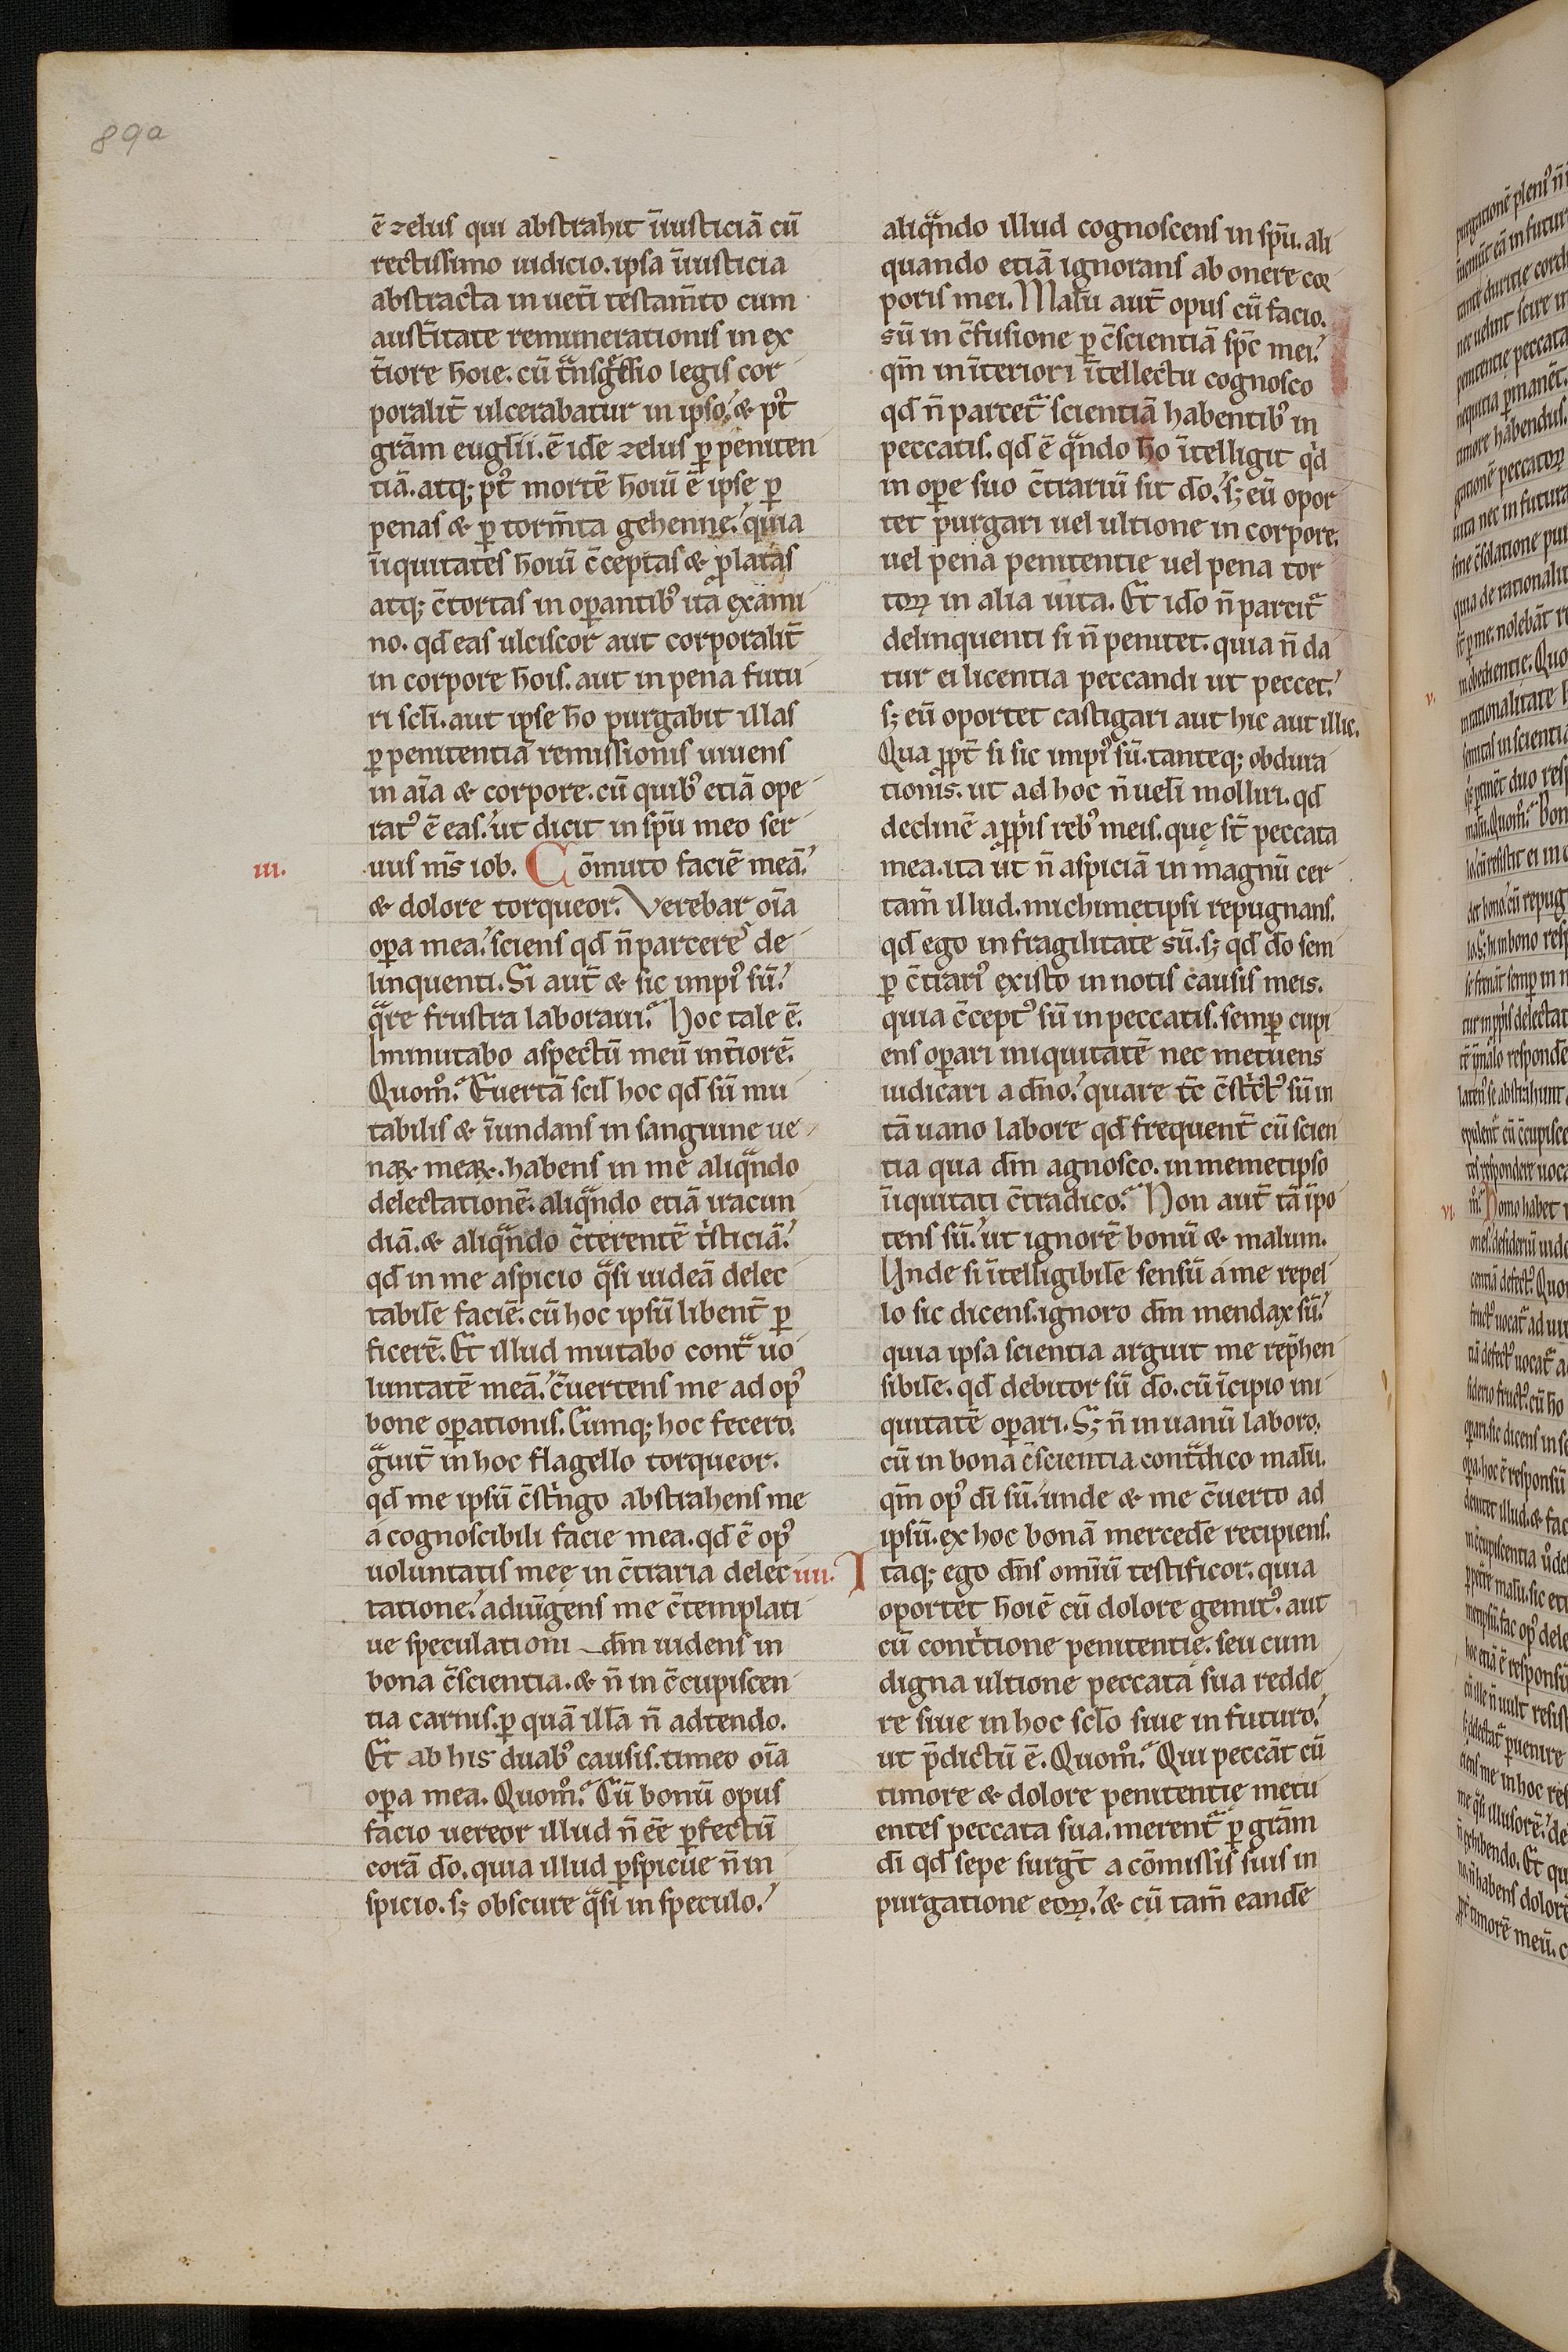 89a
ē zelus qui abstrahit īiusticiā cū
rectissimo iudicio. ipsa īiusticia
abstracta in ueti̅ testam̅to cum
aust̅itate remunerationis in ex
t̅iore hoı̅e. cū tͣnsgͤssio legis cor
poralit̅ ulcerabatur in ipso. & pꝰt
grām eug̅lii. ē idē zelus ꝑ peniten
tiā. atq; pꝰt mortē hoı̅ū ē ipse ꝑ
penas & ꝑ torm̅ta gehenne. quia
ı̅iquitates hoı̅ū c̅ceptas & ꝓlatas
atq; c̅tortas in oꝑantibꝰ ita exami
no. qd̅ eas ulciscor aut corporalit̅
in corpore hoı̅s. aut in pena futu
ri scl̅i. aut ipse ho̅ purgabit illas
ꝑ penitentiā remissionis uiuens
in aı̅a & corpore. cū quibꝰ etiā ope
ratꝰ ē eas. ut dicit in sp̅u meo ser
iii.
uus m̅s iob. Cōmuto faciē meā.
& dolore torqueor. Verebar oı̅a
oꝑa mea. sciens qd̅ n̅ parcereᷓ de
linquenti. Si aut̅ & sic impiꝰ sū.
qͣre frustra laboraui. Hoc tale ē.
Inmutabo aspectū meū int̅iorē.
Quom̊. Euertā scil̅ hoc qd̅ sū mu
tabilis & ı̅undans in sanguine ue
naꝝ meaꝝ. habens in me aliqͣndo
delectationē. aliqͣndo etiā iracun
diā. & aliqͣndo c̅terentē tⁱsticiā.
qd̅ in me aspicio qͣsi uideā delec
tabilē faciē. cū hoc ipsū libent̅ ꝑ
ficerē. Et illud mutabo contͣ uo
luntatē meā. c̅uertens me ad opꝰ
bone oꝑationis. Cumq; hoc fecero.
gͣuit̅ in hoc flagello torqueor.
qd̅ me ipsū c̅stⁱngo abstrahens me
a cognoscibili facie mea. qd̅ ē opꝰ
uoluntatis meę in c̅traria delec
tatione. adiūgens me c̅templati
ue speculationi dm̅ uidens in
bona c̅scientia. & n̅ in c̅cupiscen
tia carnis. ꝑ quā illā n̅ adtendo.
Et ab his duabꝰ causis. timeo oı̅a
oꝑa mea. Quom̊. Cū bonū opus
facio uereor illud n̅ eē ꝑfectū
corā do̅. quia illud ꝑspicue n̅ in
spicio. sꝫ obscure qͣsi in speculo.
aliqͣndo illud cognoscens in sp̅u. ali
quando etiā ignorans ab onere coꝛ
poris mei. Malū aut̅ opus cū facio.
sū in c̅fusione ꝑ c̅scientiā sp̅c mei.
qm̅ in ı̅teriori ı̅tellectu cognosco
qd̅ n̅ parcetᷓ scientiā habentibꝰ in
peccatis. qd̅ ē qͣndo ho̅ ı̅telligit qⁱd
in oꝑe suo c̅trariū sit do̅. sꝫ eū opor
tet purgari uel ultione in corpore.
uel pena penitentie uel pena tor
toꝝ in alia uita. Et ido̅ n̅ parcitᷓ
delinquenti si n̅ penitet. quia n̅ da
tur ei licentia peccandi ut peccet.
sꝫ eū oportet castigari aut hic aut illic.
Qua ꝓpt̅ si sic impiꝰ sū. tanteq; obdura
tionis. ut ad hoc n̅ uelı̅ molliri. qd̅
declinē a ꝓpⁱis rebꝰ meis. quę st̅ peccata
mea. ita ut n̅ aspiciā in magnū cer
tam̅ illud. michimetipsi repugnans.
qd̅ ego in fragilitate sū. sꝫ qd̅ do̅ sem
ꝑ c̅trariꝰ existo in notis causis meis.
quia c̅ceptꝰ sū in peccatis. semꝑ cupi
ens oꝑari iniquitatē nec metuens
iudicari a dn̅o. quare tc̅ c̅stⁱctꝰ sū in
tā uano labore qd̅ frequent̅ cū scien
tia qua dm̅ agnosco. in memetipso
ı̅iquitati c̅tradico. Non aut̅ tā ı̅po
tens sū. ut ignorē bonū & malum.
Unde si ı̅telligibilē sensū a me repel
lo sic dicens. ignoro dm̅ mendax sū.
quia ipsa scientia arguit me rep̅hen
sibilē. qd̅ debitor sū do̅. cū ı̅cipio ini
quitatē oꝑari. Sꝫ n̅ in uanū laboro.
cū in bona c̅scientia contͣdico malū.
qm̅ opꝰ di̅ sū. unde & me c̅uerto ad
ipsū. ex hoc bonā mercedē recipiens.
iiii. Itaq; ego dn̅s omı̅ū testificor. quia
oportet hoı̅ē cū dolore gemitꝰ. aut
cū contⁱtione penitentię. seu cum
digna ultione peccata sua redde
re siue in hoc scl̅o siue in futuro.
ut p̅dictū ē. Quom̊. Qui peccāt cū
timore & dolore penitentię metu
entes peccata sua. merentᷓ ꝑ grām
di̅ qd̅ sepe surgt̅ a cōmissis suis in
purgatione eoꝝ. & cū tam̅ eandē
v.
vi.